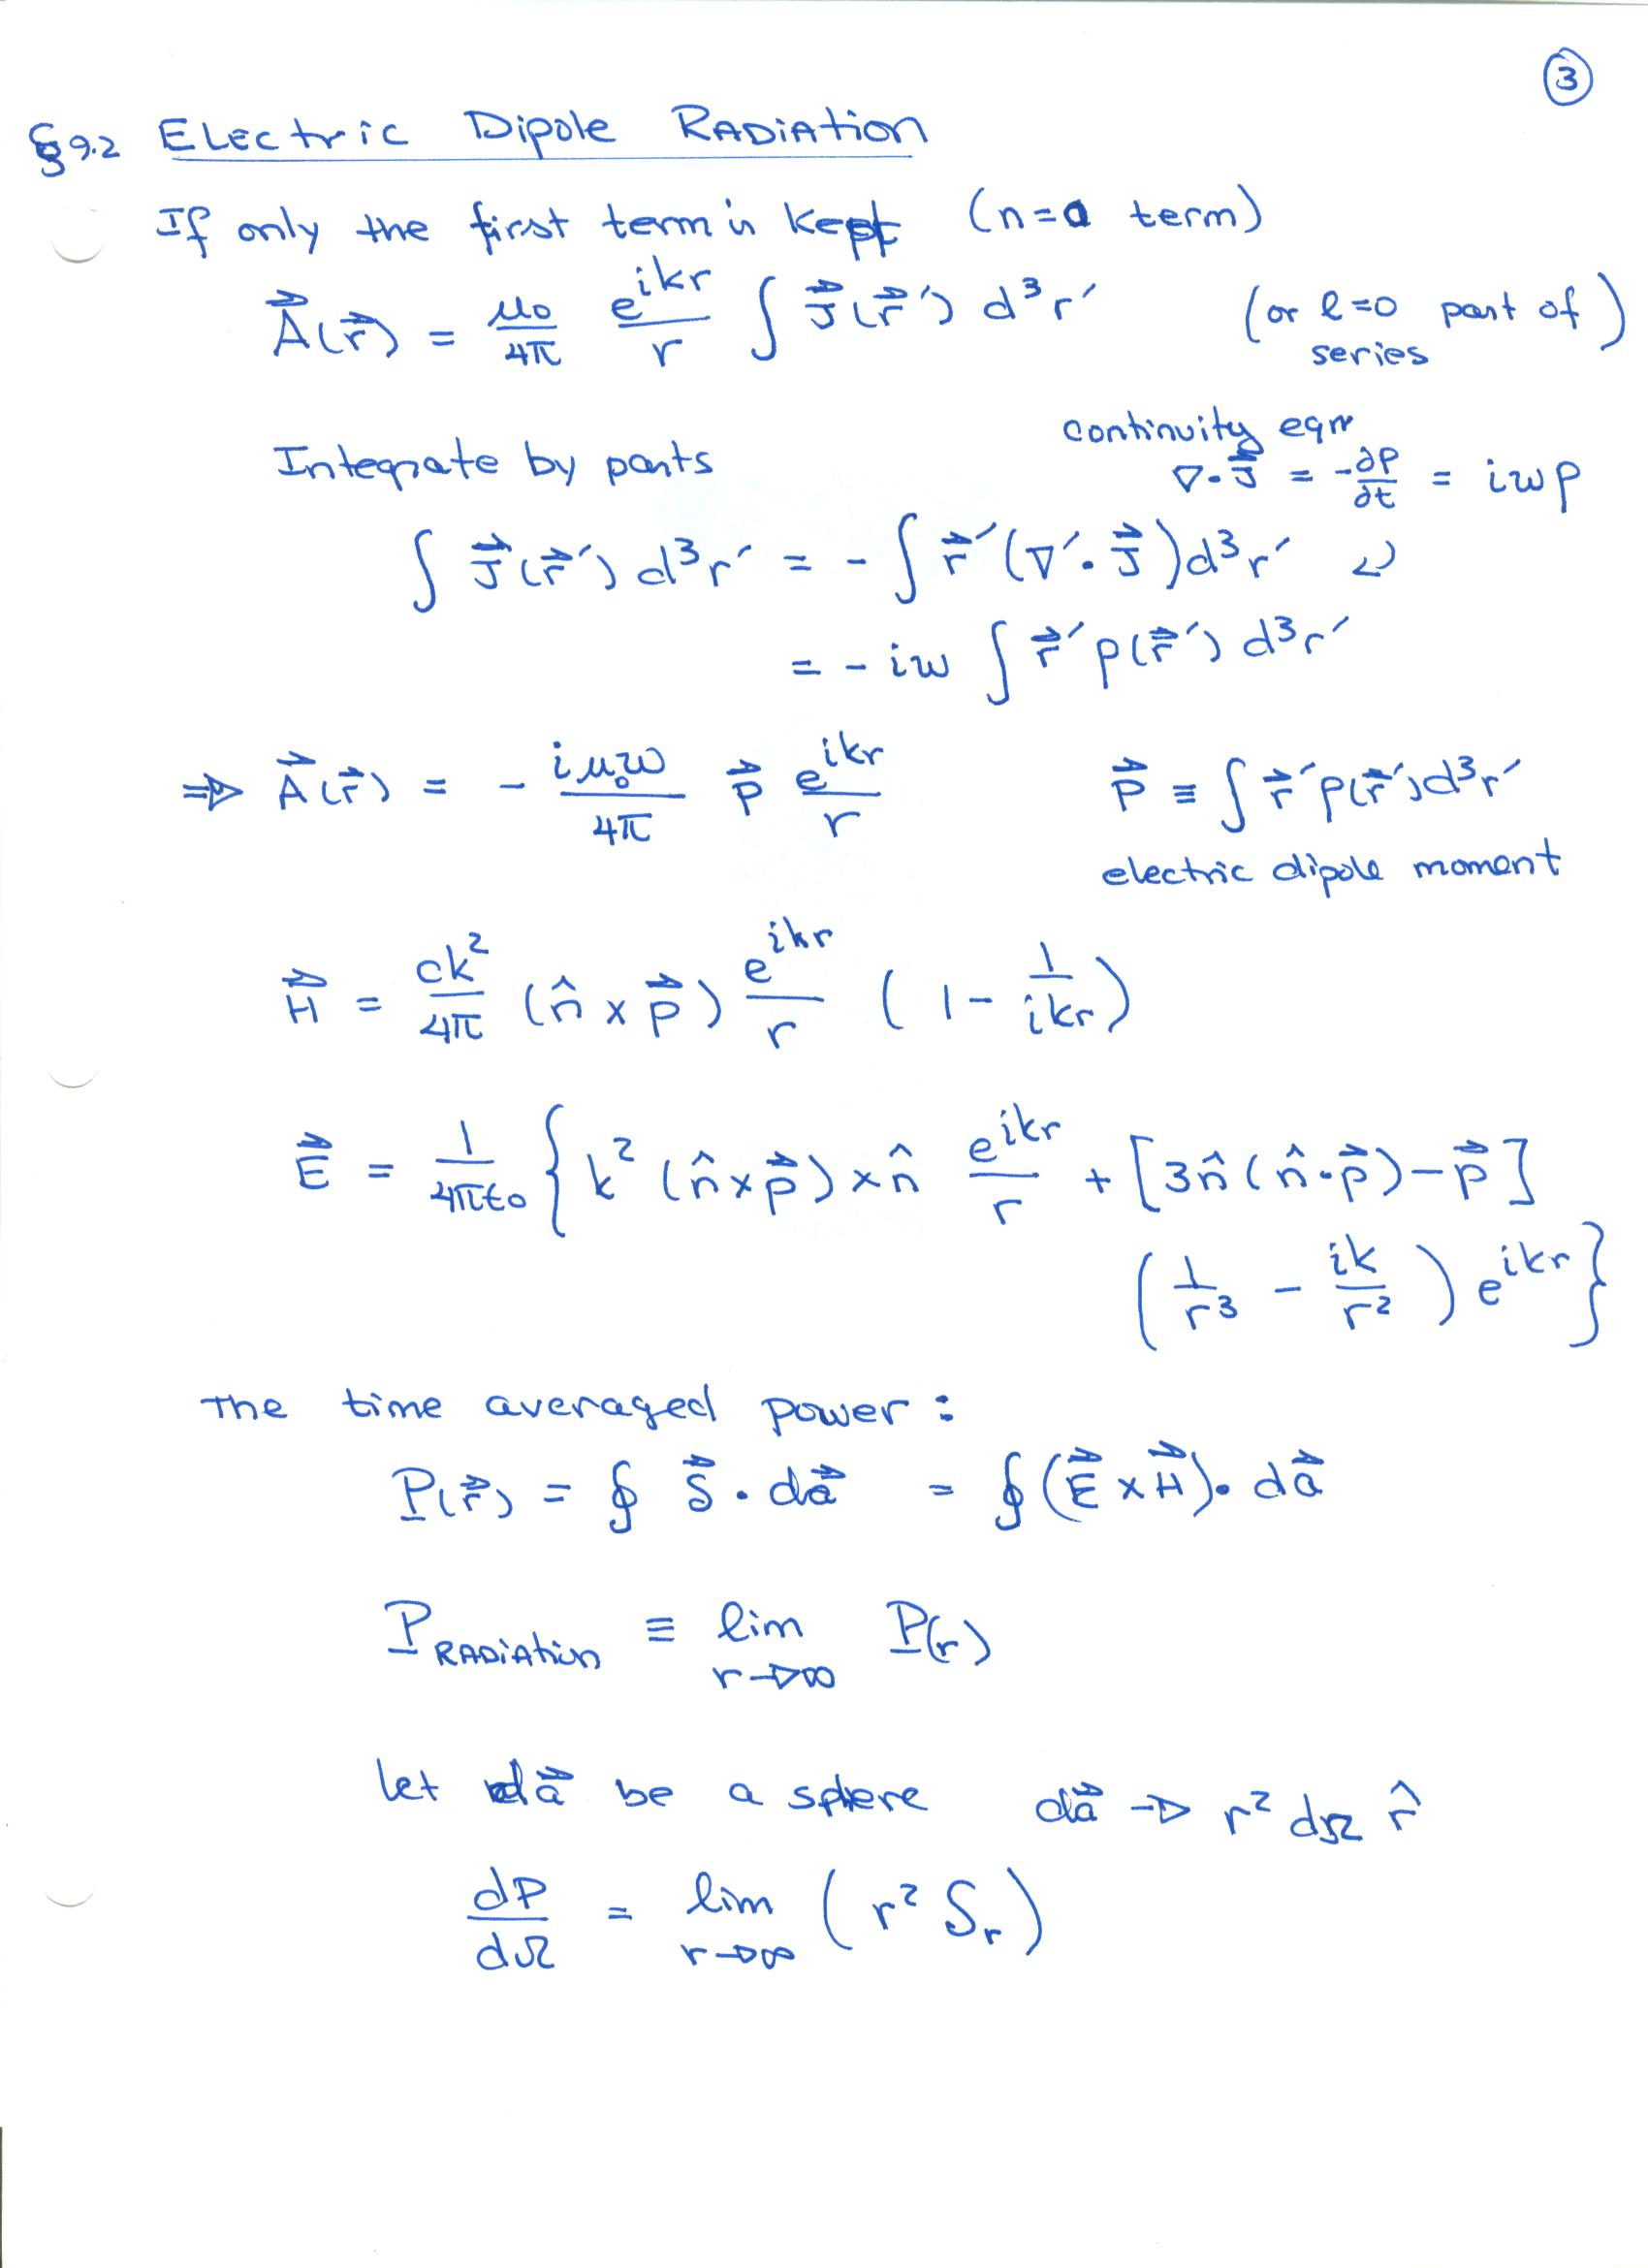 ③
§9.2 Electric Dipole Radiation
If only the first term is kept (n=0 term)
A⃗(r⃗) = μ₀/4π e^{ikr}/r ∫ J⃗(r⃗′) d³r′ (or l=0 part of series)
continuity eqn
Integrate by parts ∇·J⃗ = -∂ρ/∂t = iωρ
∫ J⃗(r⃗′) d³r′ = - ∫ r⃗′(∇′·J⃗)d³r′ ↵
= - iω ∫ r⃗′ρ(r⃗′) d³r′
⇒ A⃗(r⃗) = - iμ₀ω/4π p⃗ e^{ikr}/r p⃗ ≡ ∫ r⃗′ρ(r⃗′)d³r′
electric dipole moment
H⃗ = ck²/4π (n̂ × p⃗) e^{ikr}/r (1 - 1/ikr)
E⃗ = 1/4πε₀ { k² (n̂×p⃗)×n̂ e^{ikr}/r + [3n̂(n̂·p⃗)-p⃗]
(1/r³ - ik/r²) e^{ikr} }
The time averaged power:
P(r⃗) = ∮ S⃗ · da⃗ = ∮(E⃗×H⃗)· da⃗
P_{Radiation} ≡ lim_{r→∞} P(r)
let da⃗ be a sphere da⃗ → r² dΩ r̂
dP/dΩ = lim_{r→∞} (r² S_r)